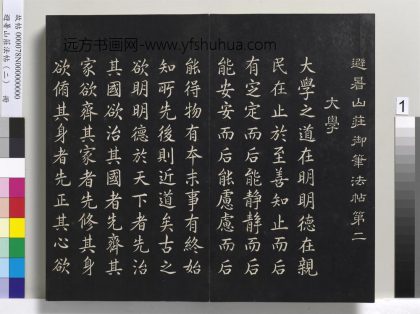 远方书画网-www.yfshuhua.com
避暑山莊御筆法帖第二
大學
大學之道在明明德在親
民在止於至善知止而后
有定定而后能靜靜而后
能安安而后能慮慮而后
能得物有本末事有終始
知所先後則近道矣古之
欲明明德於天下者先治
其國欲治其國者先齊其
家欲齊其家者先修其身
欲脩其身者先正其心欲
故帖 000078N000000000
避暑山莊法帖(二) 冊
1